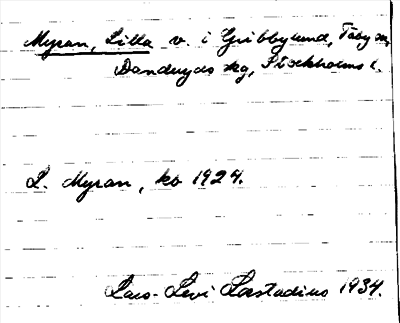 Myran, Lilla v. i Gribbylund, Täby sn,
Danderyds hg, Stockholms l.
L. Myran, kb 1924.
Lars-Levi Læstadius 1934.